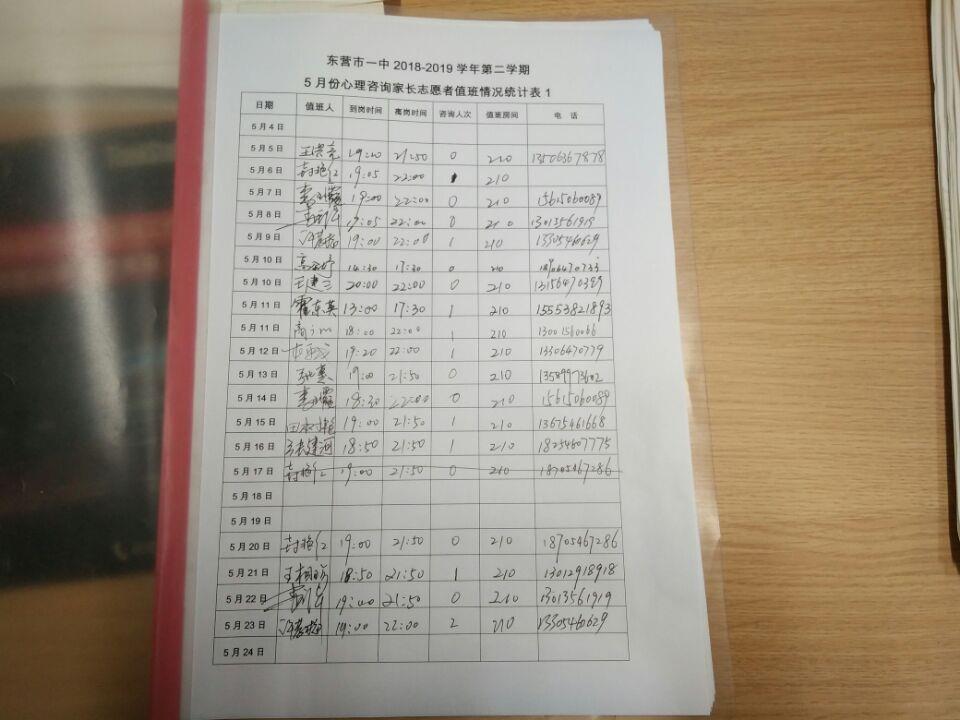 东营市一中 2018-2019 学年第二学期
5 月份心理咨询家长志愿者值班情况统计表 1
日期 值班人 到岗时间 离岗时间 咨询人次 值班房间 电 话
5 月 4 日
5 月 5 日 19:20 21:50 0 210 13506367878
5 月 6 日 19:05 22:00 210
5 月 7 日 19:00 22:00 0 210 15615060089
5 月 8 日 19:05 22:00 0 210 13013561919
5 月 9 日 19:00 22:00 1 210 13305460629
5 月 10 日 14:30 17:30 0 210
5 月 10 日 20:00 22:00 0 210 13156470389
5 月 11 日 霍东英 13:00 17:30 1 210 15553821893
5 月 11 日 18:00 22:00 1 210
5 月 12 日 19:20 22:00 1 210 13306470779
5 月 13 日 19:00 21:50 0 210
5 月 14 日 18:30 22:00 0 210 15615060089
5 月 15 日 19:00 21:50 1 210 13675461668
5 月 16 日 18:50 21:50 1 210 18254607775
5 月 17 日 19:00 21:50 0 210 18705467286
5 月 18 日
5 月 19 日
5 月 20 日 19:00 21:50 0 210 18705467286
5 月 21 日 18:50 21:50 1 210 13012918918
5 月 22 日 21:50 0 210 13013561919
5 月 23 日 19:00 22:00 2 210 13305460629
5 月 24 日